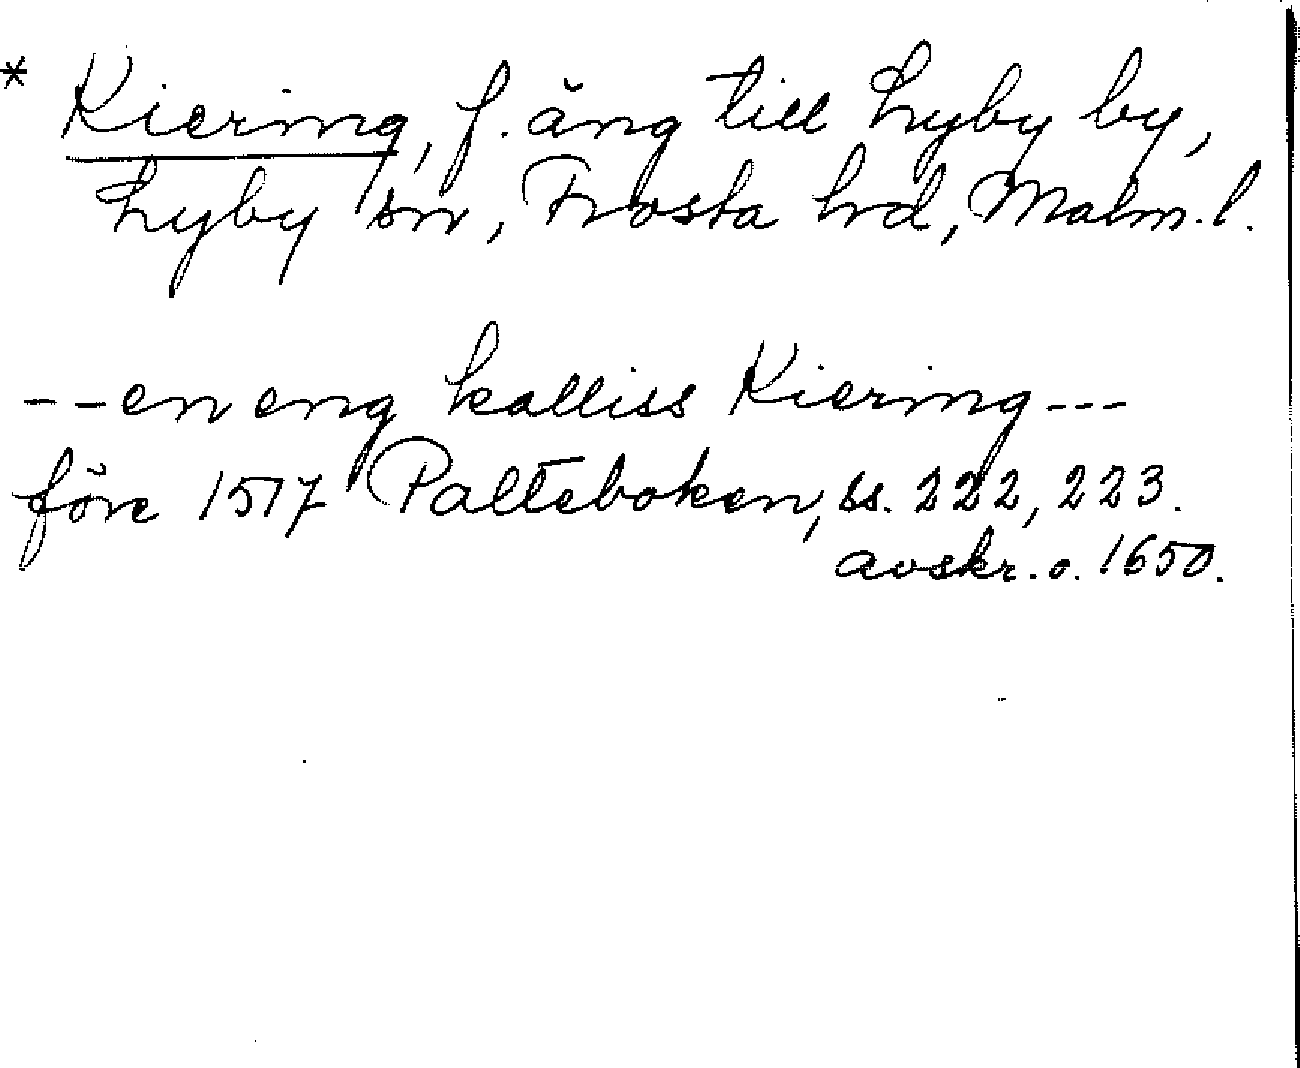 * Kiering, f. äng till Hyby by,
Hyby sn, Frosta hrd, Malm. l.
-- en eng kalliss Kiering ---
före 1517 Palteboken, ss. 222, 223.
avskr. o. 1650.